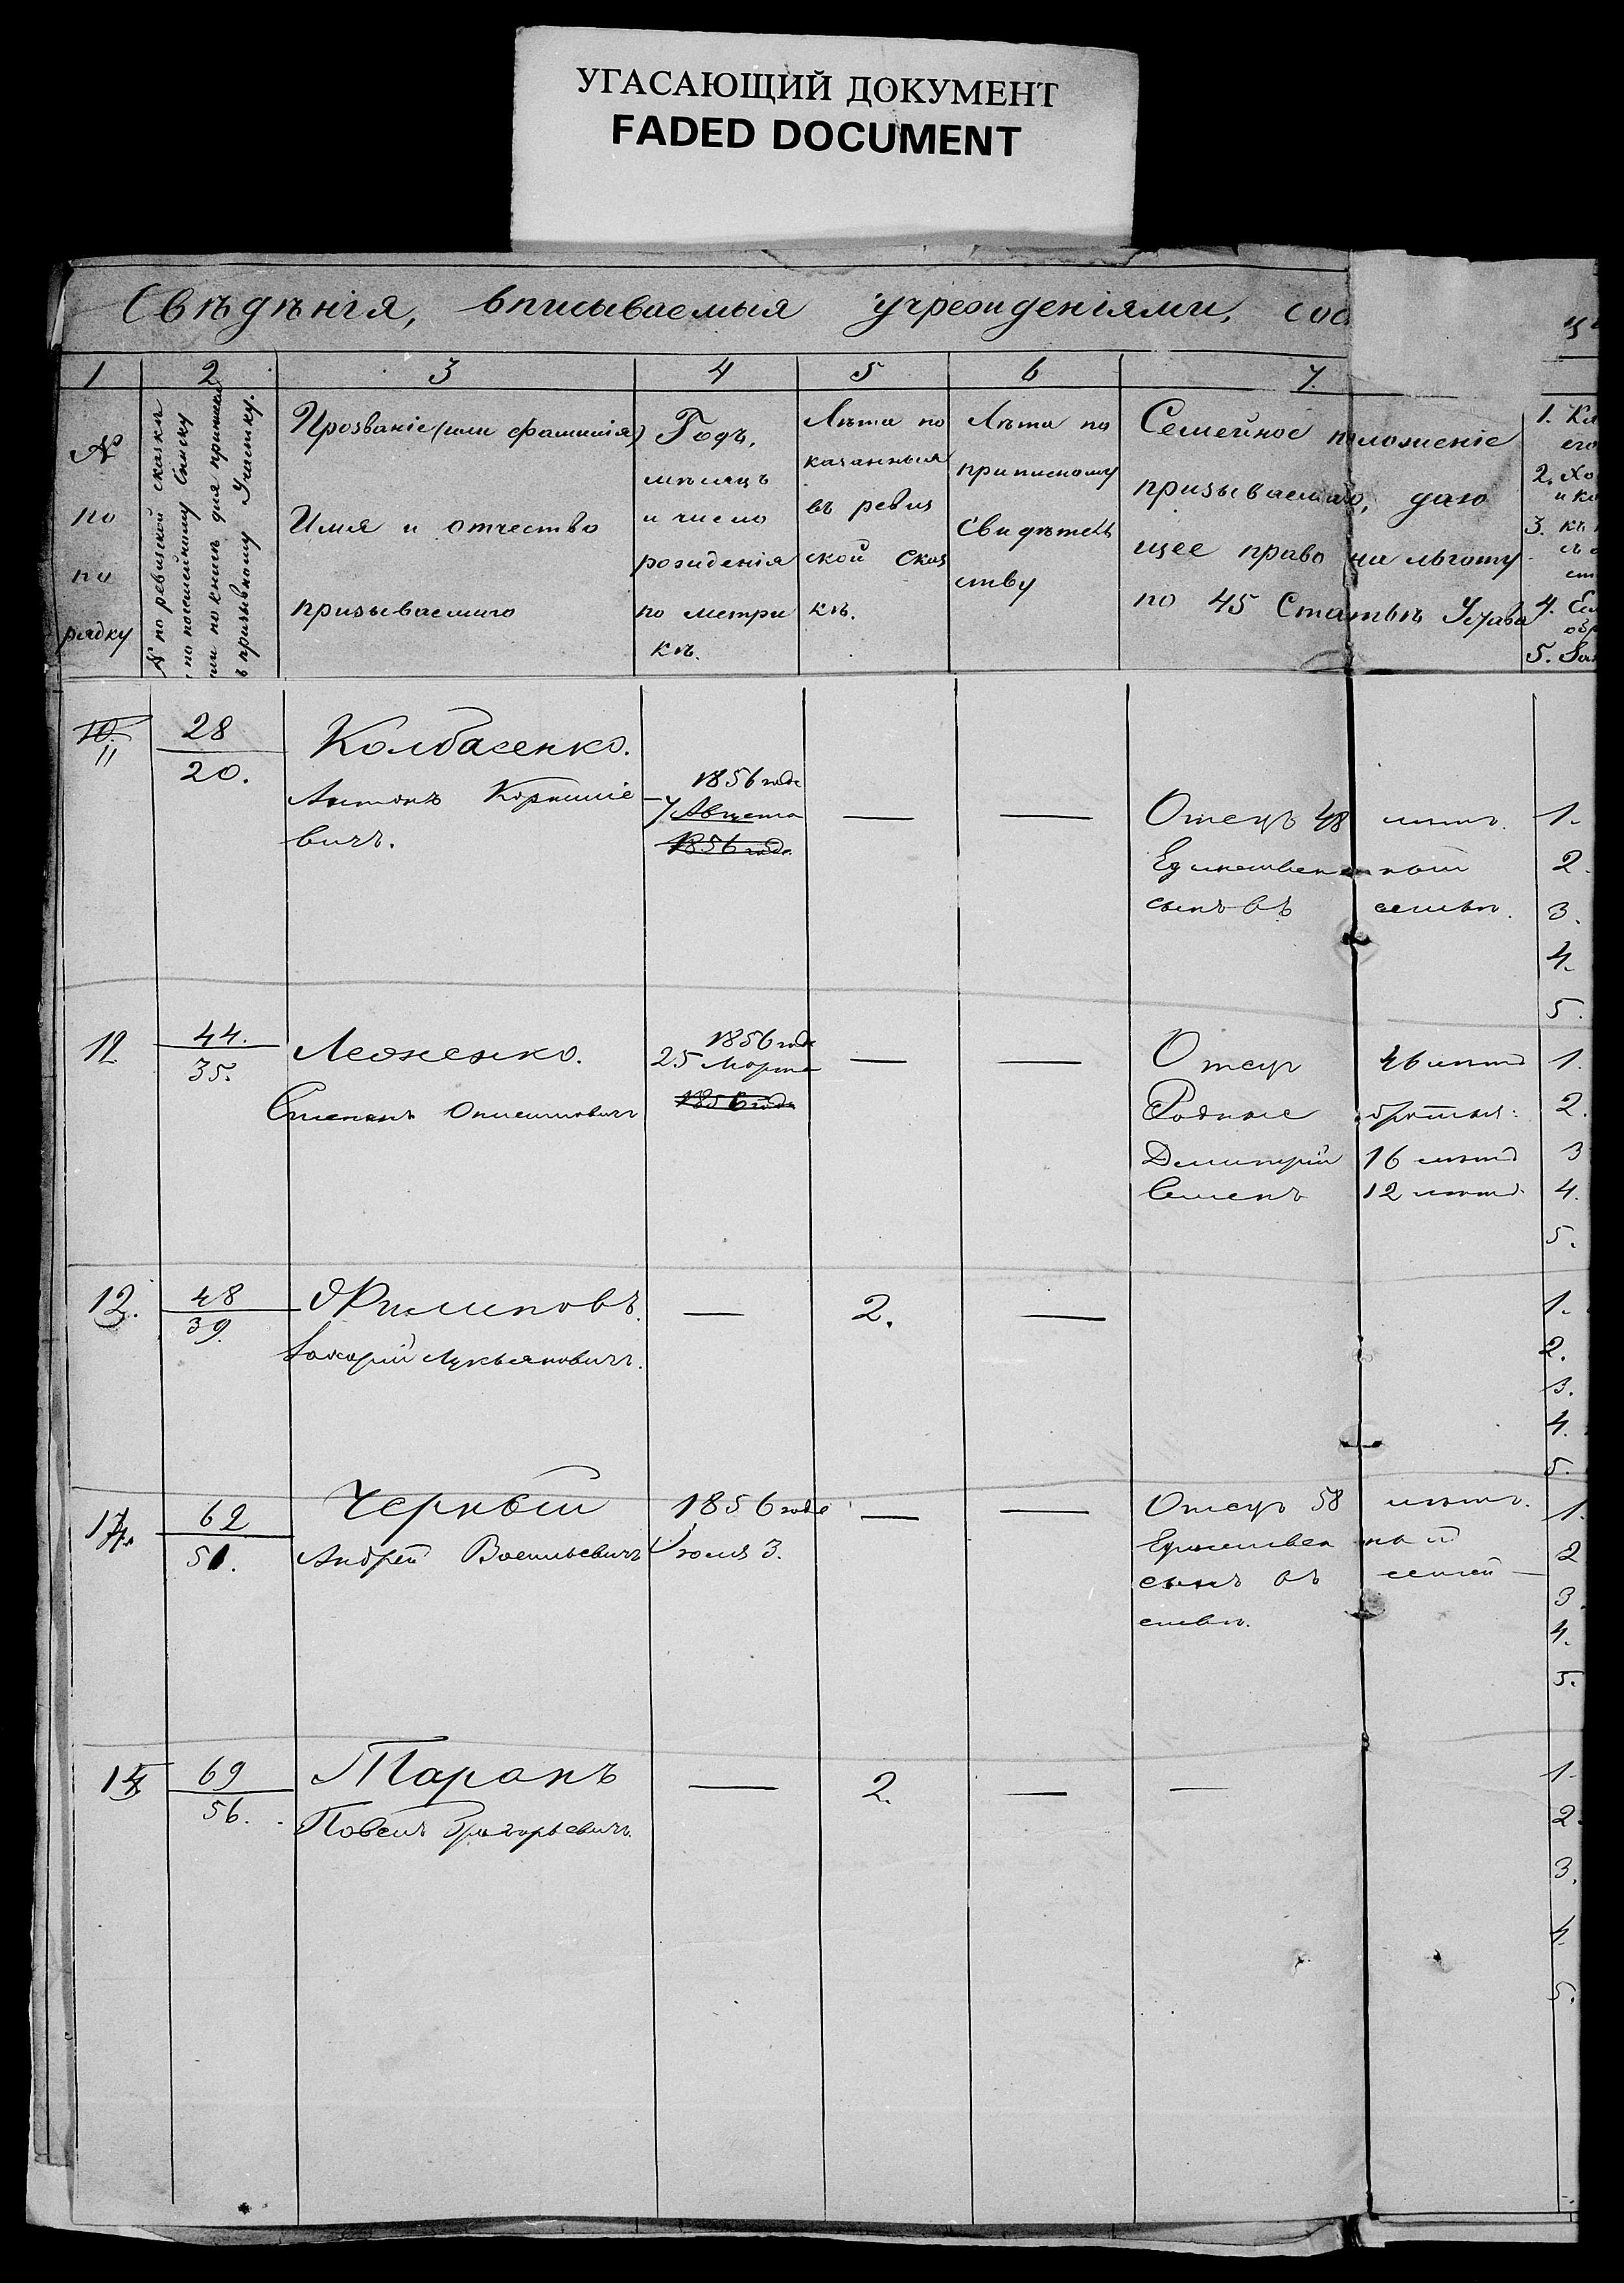 УГАСАЮЩИЙ ДОКУМЕНТ
FADED DOCUMENT
Свѣдѣнія, вписываемыя учрежденіями, сос
1 2 3 4 5 6 7.
№ по порядку
№ по ревизской сказкѣ
по посемейному списку
или по книгѣ для приписки
къ призывному Участку.
Прозваніе (или фамилія)
Имя и отчество
призываемаго
Годъ,
мѣсяцъ
и число
рожденія
по метри
кѣ.
Лѣта по
казанныя
въ ревиз
ской сказ
кѣ.
Лѣта по
приписному
Свидѣтель
ству
Семейное положеніе
призываемаго, даю
щее право на льготу
по 45 Статьѣ Устава
1. Кл
его
2. Хо
и ко
3. къ
съ
ст
4. Есл
обр
5. Зан
10.
11
28
20.
Колбасенко.
Антонъ Корниліе
вичъ.
1856 года
7 Августа
1856 года
—
—
Отецъ 48 лѣтъ.
Единственный
сынъ въ семьѣ.
1.
2.
3.
4.
5.
12
44.
35.
Леоненко.
Степанъ Онисимовичъ
1856 года
25 Марта
1856 года
—
—
Отецъ 46 лѣтъ
Родные братья:
Димитрій 16 лѣтъ
Семенъ 12 лѣтъ
1.
2.
3
4.
5.
13.
48
39.
Филиповъ.
Захарій Лукьяновичъ.
—
2.
—
1.
2.
3.
4.
5.
14.
62
51.
Черный
Андрей Васильевичъ
1856 года
Іюля 3.
—
—
Отецъ 58 лѣтъ.
Единственный
сынъ въ семей—
ствѣ.
1.
2
3.
4.
5.
15
69
56.
Таранъ
Павелъ Григорьевичъ.
—
2.
—
—
1.
2.
3.
4.
5.